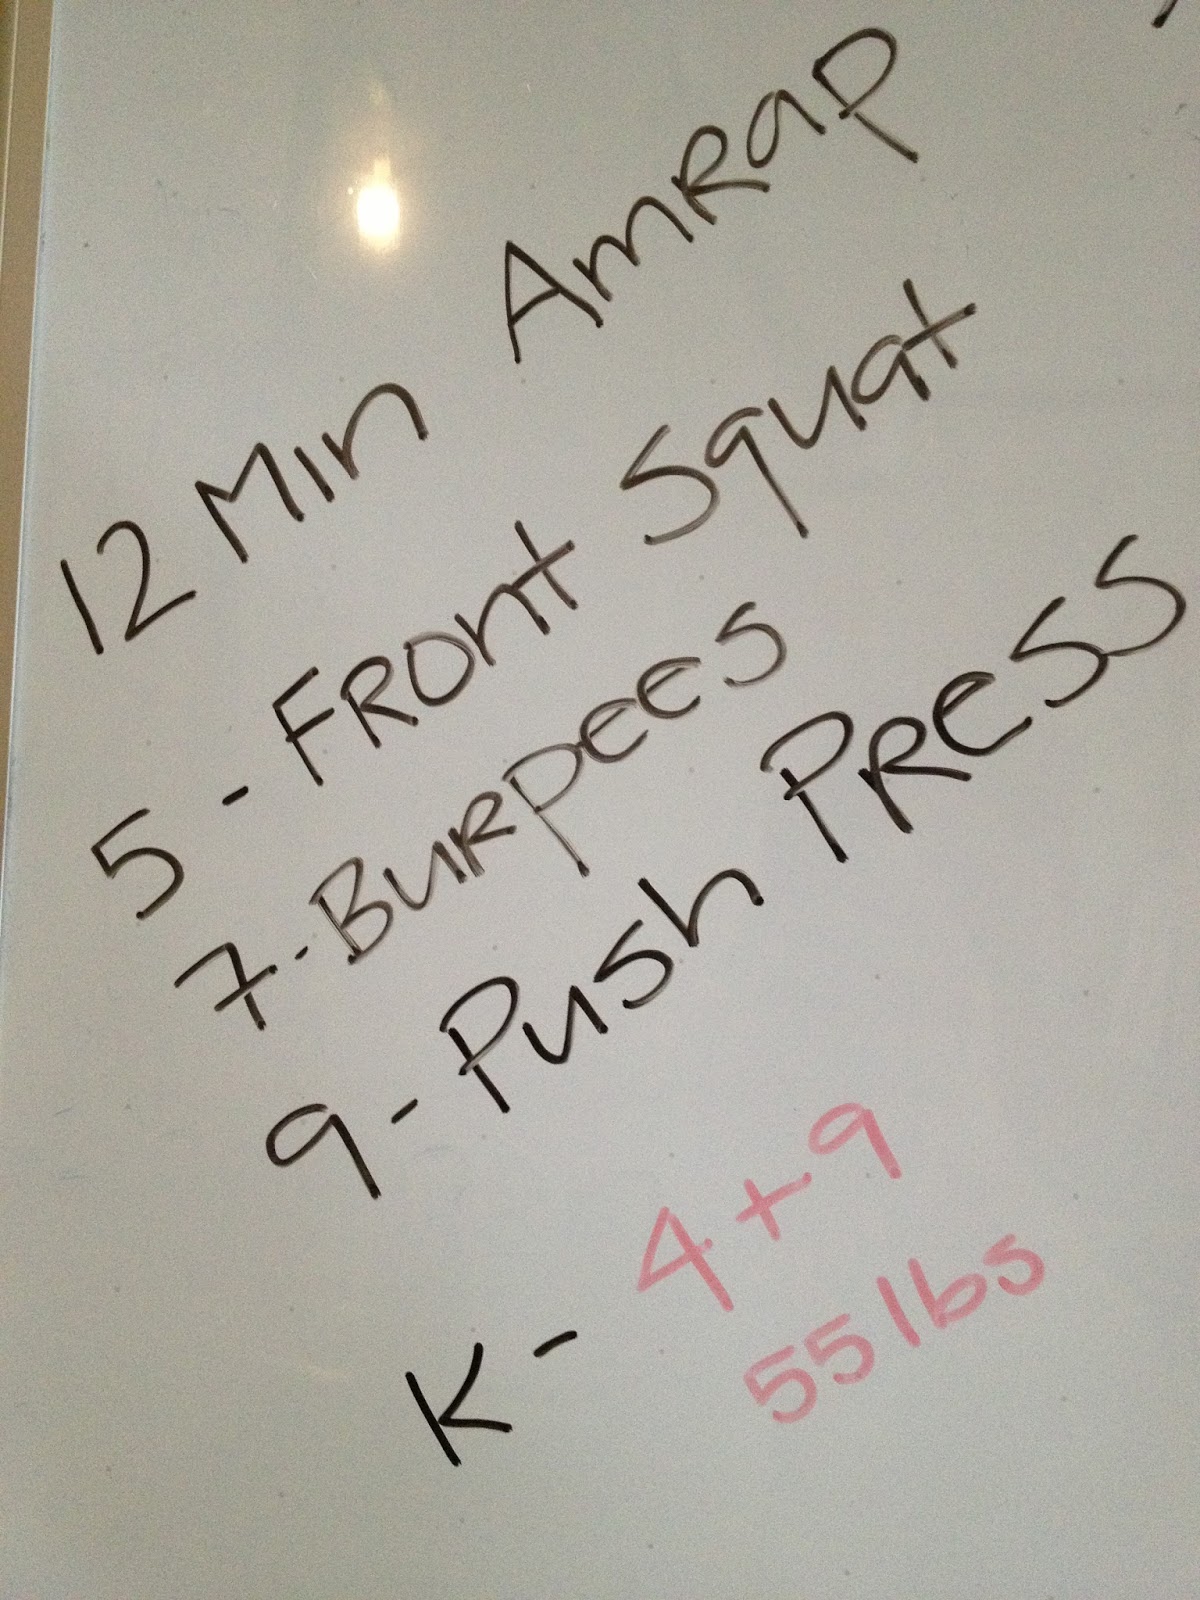 12 Min AmRap
5 - FRont Squat
7 - BuRpees
9 - Push PRess
K - 4 + 9
55 lbs